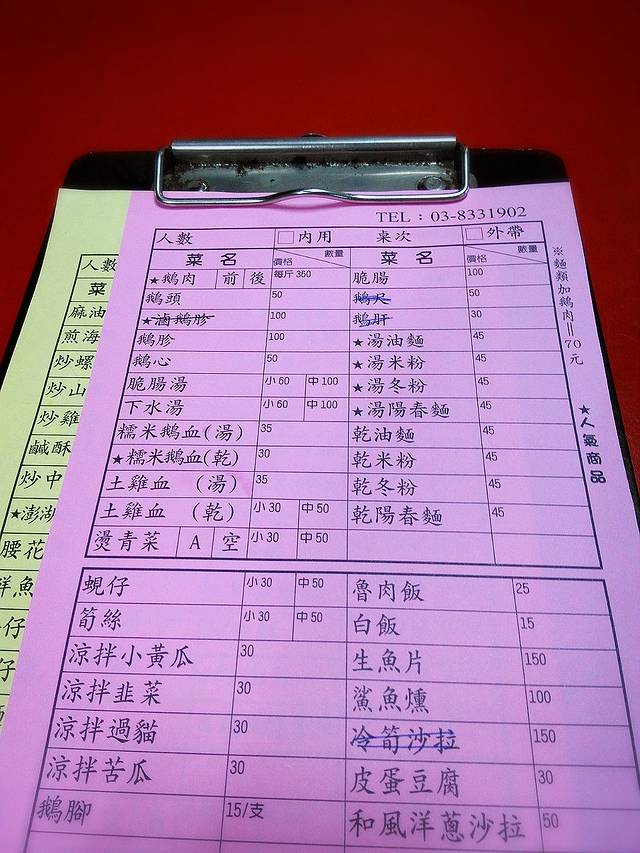 TEL：03-8331902
人數 □內用 桌次 □外帶
菜名 價格 數量 菜名 價格 數量
★鵝肉 前 後 每斤360 脆腸 100
鵝頭 50 鵝尺 50
★滷鵝胗 100 鵝肝 50
鵝胗 100 ★湯油麵 45
鵝心 50 ★湯米粉 45
脆腸湯 小60 中100 ★湯冬粉 45
下水湯 小60 中100 ★湯陽春麵 45
糯米鵝血(湯) 35 乾油麵 45
★糯米鵝血(乾) 30 乾米粉 45
土雞血 (湯) 35 乾冬粉 45
土雞血 (乾) 小30 中50 乾陽春麵 45
燙青菜 A 空 小30 中50
※麵類加鵝肉＝70元
★人氣商品
蜆仔 小30 中50 魯肉飯 25
筍絲 小30 中50 白飯 15
涼拌小黃瓜 30 生魚片 150
涼拌韭菜 30 鯊魚燻 100
涼拌過貓 30 冷筍沙拉 150
涼拌苦瓜 30 皮蛋豆腐 30
鵝腳 15/支 和風洋蔥沙拉 50
人數
菜
麻油
煎海
炒螺
炒山
炒雞
鹹酥
炒中
★澎湖
腰花
鮮魚
仔
仔